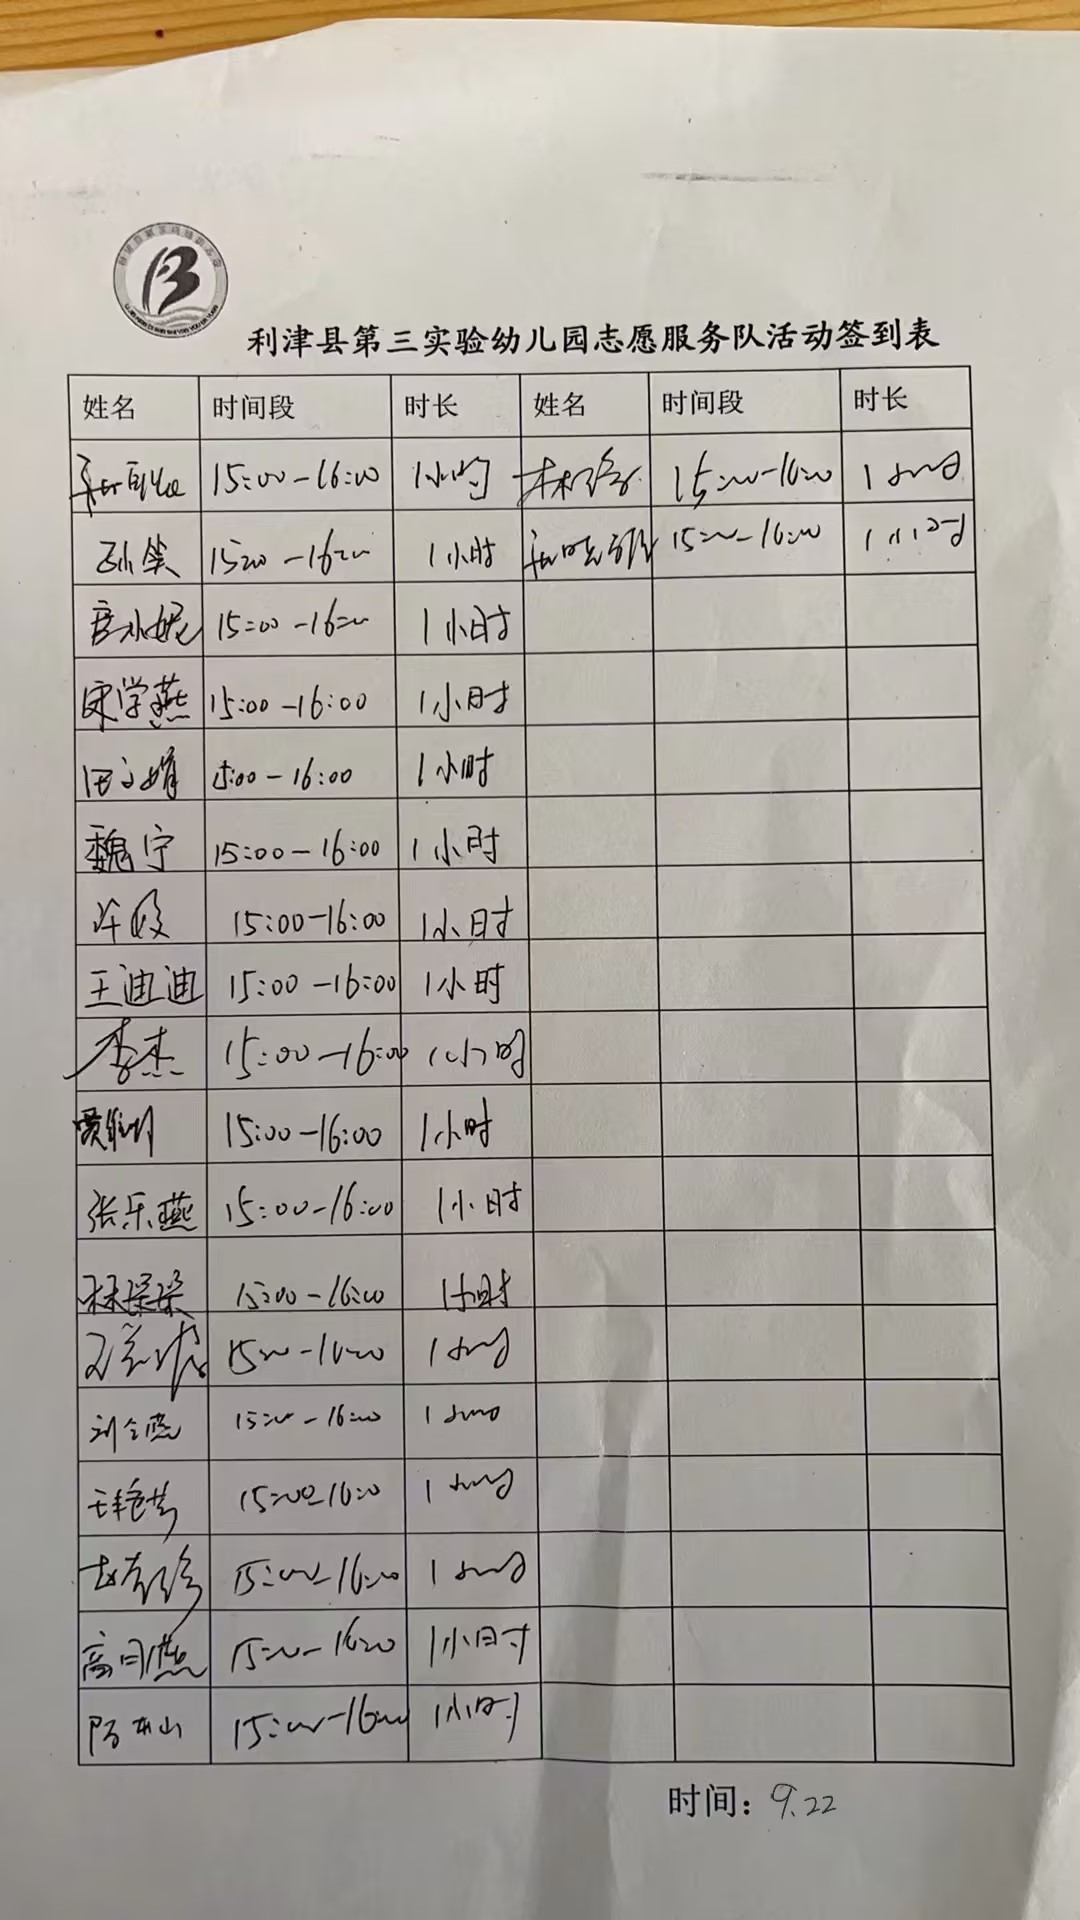 利津县第三实验幼儿园志愿服务队活动签到表
姓名 时间段 时长 姓名 时间段 时长
15:00-16:00 1小时 15:00-16:00 1小时
孙笑 15:00-16:00 1小时 15:00-16:00 1小时
15:00-16:00 1小时
宋学燕 15:00-16:00 1小时
田文娟 15:00-16:00 1小时
魏宁 15:00-16:00 1小时
许 15:00-16:00 1小时
王迪迪 15:00-16:00 1小时
李杰 15:00-16:00 1小时
15:00-16:00 1小时
张乐燕 15:00-16:00 1小时
林琛琛 15:00-16:00 1小时
15:00-16:00 1小时
刘 燕 15:00-16:00 1小时
王艳芳 15:00-16:00 1小时
赵 珍 15:00-16:00 1小时
高 燕 15:00-16:00 1小时
山 15:00-16:00 1小时
时间：9.22